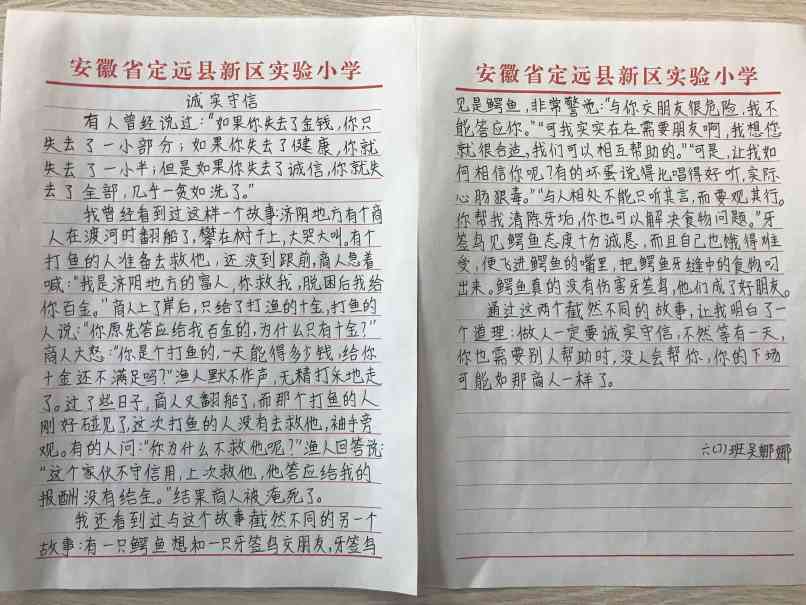 安徽省定远县新区实验小学
诚实守信
有人曾经说过：“如果你失去了金钱，你只
失去了一小部分；如果你失去了健康，你就
失去了一小半；但是如果你失去了诚信，你就失
去了全部，几乎一贫如洗了。”
我曾经看到过这样一个故事：济阳地方有个商
人在渡河时翻船了，攀在树干上，大哭大叫。有个
打鱼的人准备去救他，还没到跟前，商人急着
喊：“我是济阳地方的富人，你救我，脱困后我给
你百金。”商人上了岸后，只给了打渔的十金，打鱼的
人说：“你原先答应给我百金的，为什么只有十金？”
商人大怒：“你是个打鱼的，一天能得多少钱，给你
十金还不满足吗？”渔人默不作声，无精打采地走
了。过了些日子，商人又翻船了，而那个打鱼的人
刚好碰见了，这次打鱼的人没有去救他，袖手旁
观。有的人问：“你为什么不救他呢？”渔人回答说：
“这个家伙不守信用，上次救他，他答应给我的
报酬没有给全。”结果商人被淹死了。
我还看到过与这个故事截然不同的另一个
故事：有一只鳄鱼想和一只牙签鸟交朋友，牙签鸟
安徽省定远县新区实验小学
见是鳄鱼，非常警觉：“与你交朋友很危险，我不
能答应你。”“可我实实在在需要朋友啊，我想您
就很合适，我们可以相互帮助的。”“可是，让我如
何相信你呢？有的坏蛋说得比唱得好听，实际
心肠狠毒。”“与人相处不能只听其言，而要观其行。
你帮我清除牙垢，你也可以解决食物问题。”牙
签鸟见鳄鱼态度十分诚恳，而且自己也饿得难
受，便飞进鳄鱼的嘴里，把鳄鱼牙缝中的食物叼
出来。鳄鱼真的没有伤害牙签鸟，他们成了好朋友。
通过这两个截然不同的故事，让我明白了一
个道理：做人一定要诚实守信，不然等有一天，
你也需要别人帮助时，没人会帮你，你的下场
可能如那商人一样了。
六(1)班吴娜娜